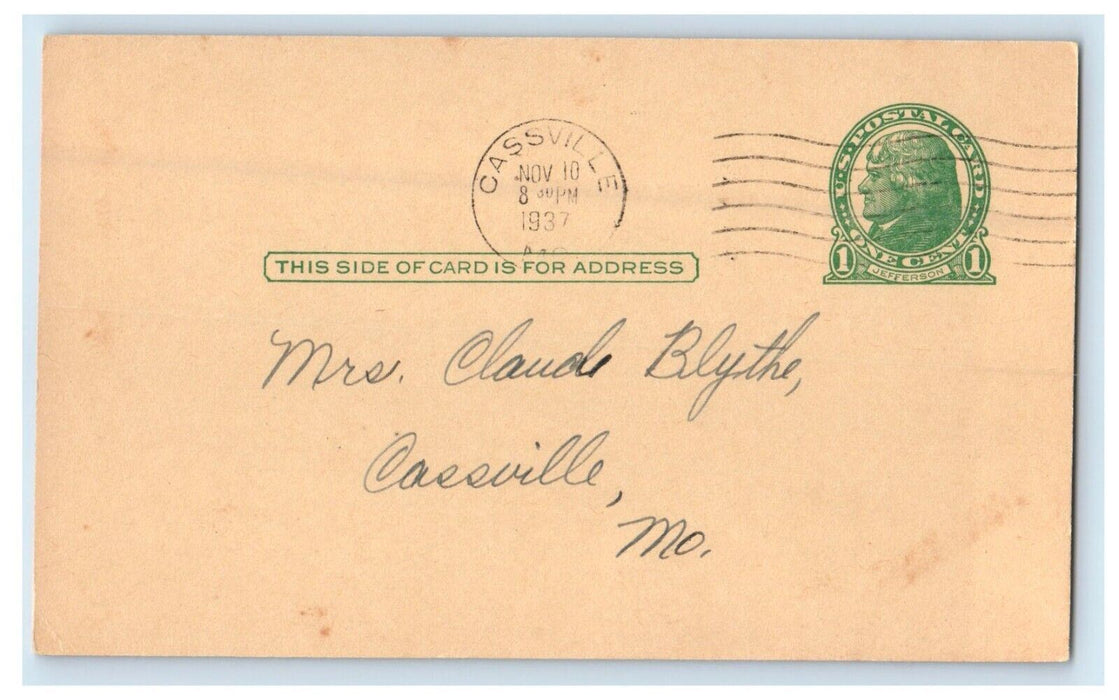 CASSVILLE
NOV 10
8 30 PM
1937
MO.
U.S. POSTAL CARD
ONE CENT
1 JEFFERSON 1
THIS SIDE OF CARD IS FOR ADDRESS
Mrs. Claude Blythe,
Cassville,
Mo.